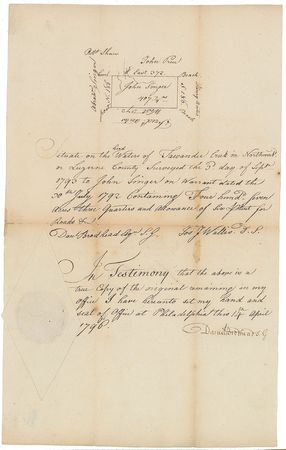 Robt Shaw
John Penn
East 372
Beach
John Songer
407 3/4
Situate on the Waters of Tawanda Creek in Northumd
or Luzerne County Surveyed the 3d day of Sept
1793 to John Songer on Warrant dated the
30th July 1792 Containing Four hund. Seven
Acres three Quarters and Allowance of Six P Cent for
Roads &c
Dan Brodhead Esqr S.G. Wallis D.S.
In Testimony that the above is a
true Copy of the original remaining in my
office I have hereunto set my hand and
seal of Office at Philadelphia this 14th April
1796
Daniel Brodhead S.G